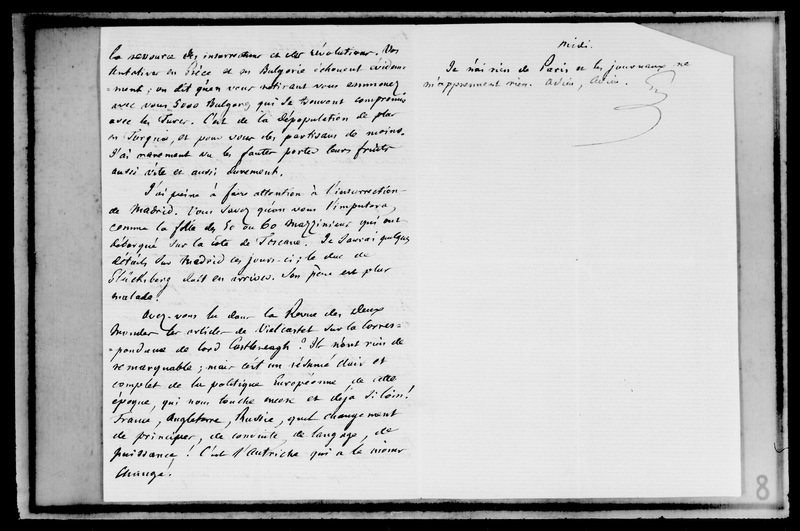 la ressource des insurrections et des révolutions. Vos
tentatives en Grèce et en Bulgarie échouent évidem-
-ment ; on dit qu'en vous retirant vous emmenez
avec vous 5000 Bulgares qui se trouvent compromis
avec les Turcs. C'est de la dépopulation de plus
en Turquie, et pour vous des partisans de moins.
J'ai rarement vu les fautes porter leurs fruits
aussi vite et aussi durement.
J'ai peine à faire attention à l'insurrection
de Madrid. Vous savez qu'on vous l'imputera,
comme la folie des 50 ou 60 Mazziniens qui ont
débarqué sur la côte de Toscane. Je saurai quelques
détails sur Madrid ces jours-ci ; le duc de
Glücksberg doit en arriver. Son père est plus
malade.
Avez-vous lu dans la Revue des deux
Mondes les articles de Vielcastel sur la Corres-
-pondance de lord Castlereagh ? Ils n'ont rien de
remarquable ; mais c'est un résumé clair et
complet de la politique Européenne de cette
époque, qui nous touche encore et déjà si loin !
France, Angleterre, Russie, quel changement
de principes, de conduite, de langage, de
puissance ! C'est l'Autriche qui a le moins
changé !
Midi.
Je n'ai rien de Paris et les journaux ne
m'apprennent rien. Adieu, Adieu.
8